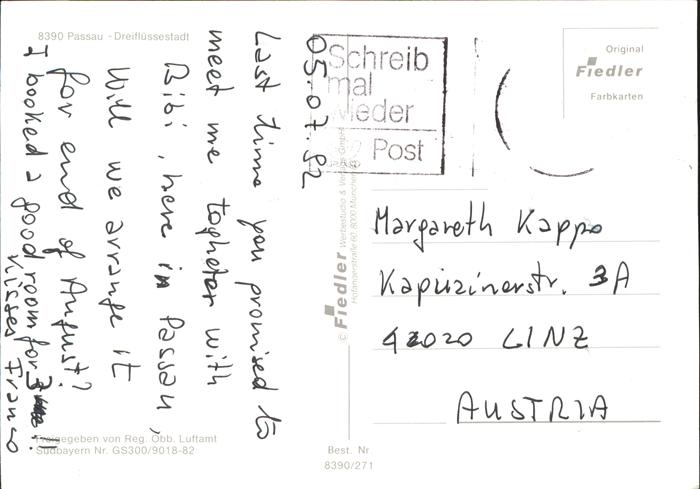 8390 Passau - Dreiflüssestadt
05.07.82
Last time you promised to
meet me togheter with
Bibi, here in Passau,
Will we arrange it
for end of August?
I booked a good room for 3 !!
Kisses Franco
Schreib
mal
wieder
Post
Original
Fiedler
Farbkarten
Margareth Kappo
Kapuzinerstr. 3A
4020 LINZ
AUSTRIA
© Fiedler
Freigegeben von Reg. Obb. Luftamt
Südbayern Nr. GS300/9018-82
Best. Nr.
8390/271